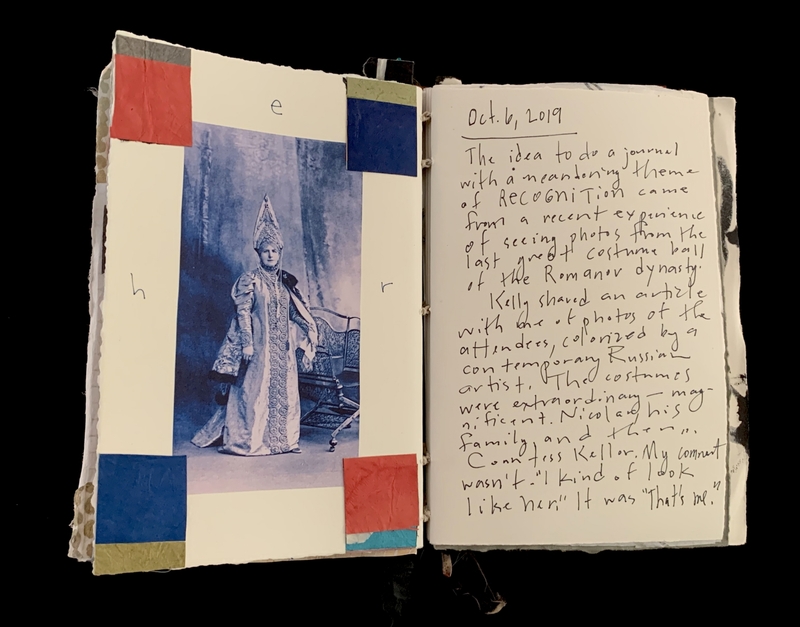 e
h
r
Oct. 6, 2019
The idea to do a journal
with a meandering theme
of RECOGNITION came
from a recent experience
of seeing photos from the
last great costume ball
of the Romanov dynasty.
Kelly shared an article
with me of photos of the
attendees, colorized by a
contemporary Russian
artist. The costumes
were extraordinary — mag-
nificent. Nicolas, his
family and then...
Countess Keller. My comment
wasn't "I kind of look
like her." It was "That's me."